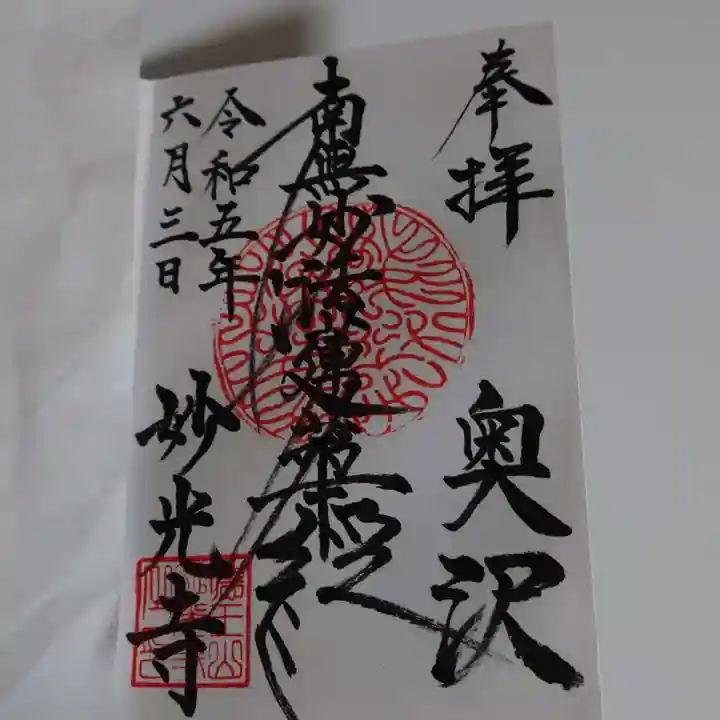 奉拝
奥沢
南無妙法蓮華経
令和五年
六月三日
妙光寺